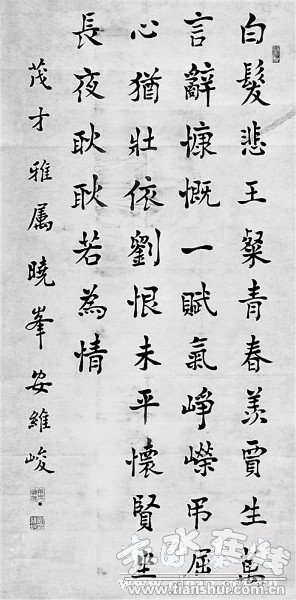 白髮悲王粲青春羡賈生萬
言辭慷慨一賦氣崢嶸弔屈
心猶壯依劉恨未平懷賢坐
長夜耿耿若為情
茂才雅属曉峯安維峻
天水在线
www.tianshui.com.cn